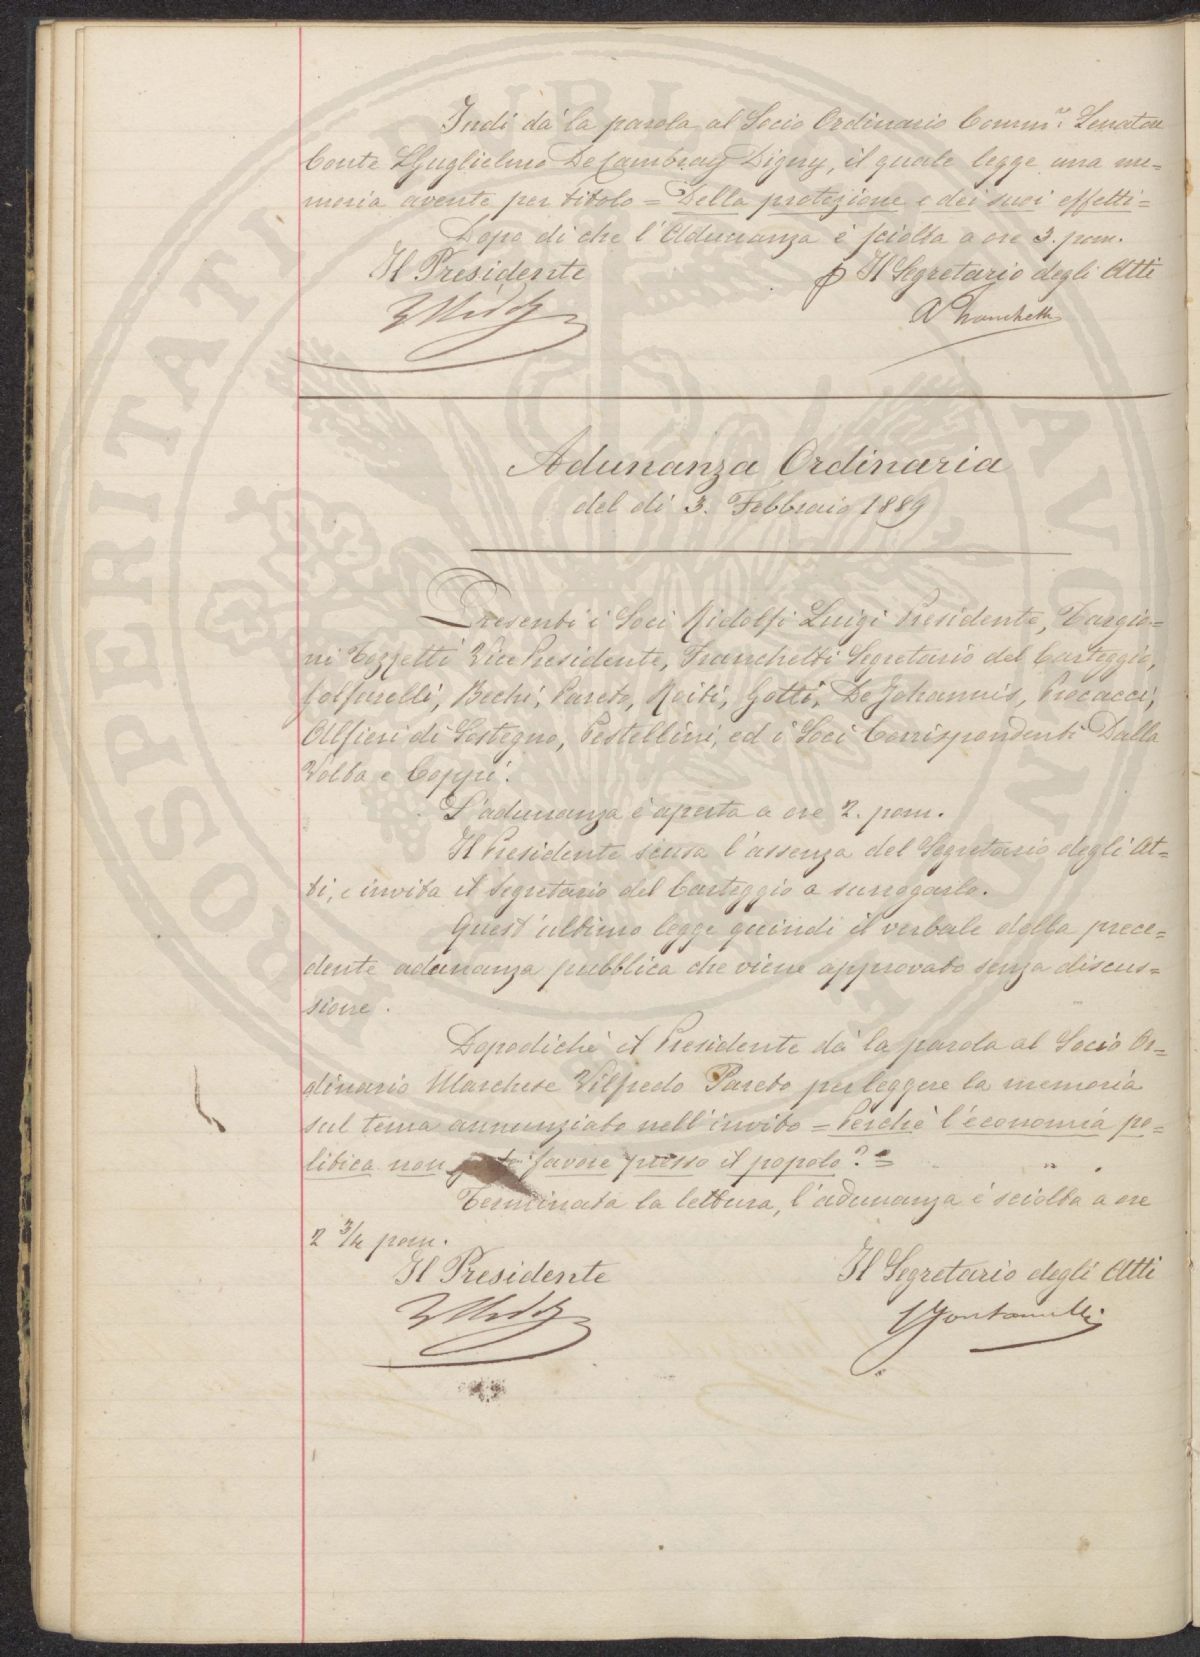 Indi dà la parola al Socio Ordinario Comm.re Senatore
Conte Guglielmo De Cambray Digny, il quale legge una me=
moria avente per titolo = Della protezione e dei suoi effetti =
Dopo di che l'Adunanza è sciolta a ore 3. pom.
Il Presidente
Il Segretario degli Atti
A Franchetti
Adunanza Ordinaria
del dì 3. Febbraio 1889
Presenti i Soci Ridolfi Luigi Presidente, Targio=
ni Tozzetti Vice Presidente, Franchetti Segretario del Carteggio,
Bechi, Pareto, Roiti, Gotti, De Johannis, Procacci,
Alfieri di Sostegno, Pestellini, ed i Soci Corrispondenti Dalla
Volta e Coppi.
L'adunanza è aperta a ore 2. pom.
Il Presidente scusa l'assenza del Segretario degli At=
ti, e invita il Segretario del Carteggio a surrogarlo.
Quest'ultimo legge quindi il verbale della prece=
dente adunanza pubblica che viene approvato senza discus=
sione.
Dopodichè il Presidente dà la parola al Socio Or=
dinario Marchese Vilfredo Pareto per leggere la memoria
sul tema annunziato nell'invito = Perchè l'economia po=
litica non favore presso il popolo? =
Terminata la lettura, l'adunanza è sciolta a ore
2 3/4 pom.
Il Presidente
Il Segretario degli Atti
CFontanelli
PROSPERITATI PUBLICAE AUGENDAE